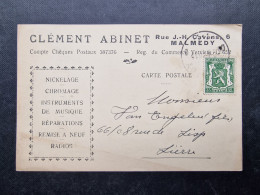 CLÉMENT ABINET
Rue J.-H. Cavens, 6
MALMEDY
Compte Chèques Postaux
Reg. du Commerce Verviers
CARTE POSTALE
NICKELAGE
CHROMAGE
INSTRUMENTS
DE MUSIQUE
RÉPARATIONS
REMISE A NEUF
RADIOS
Monsieur
Van Engelen
66/68 rue Lisp
Lierre